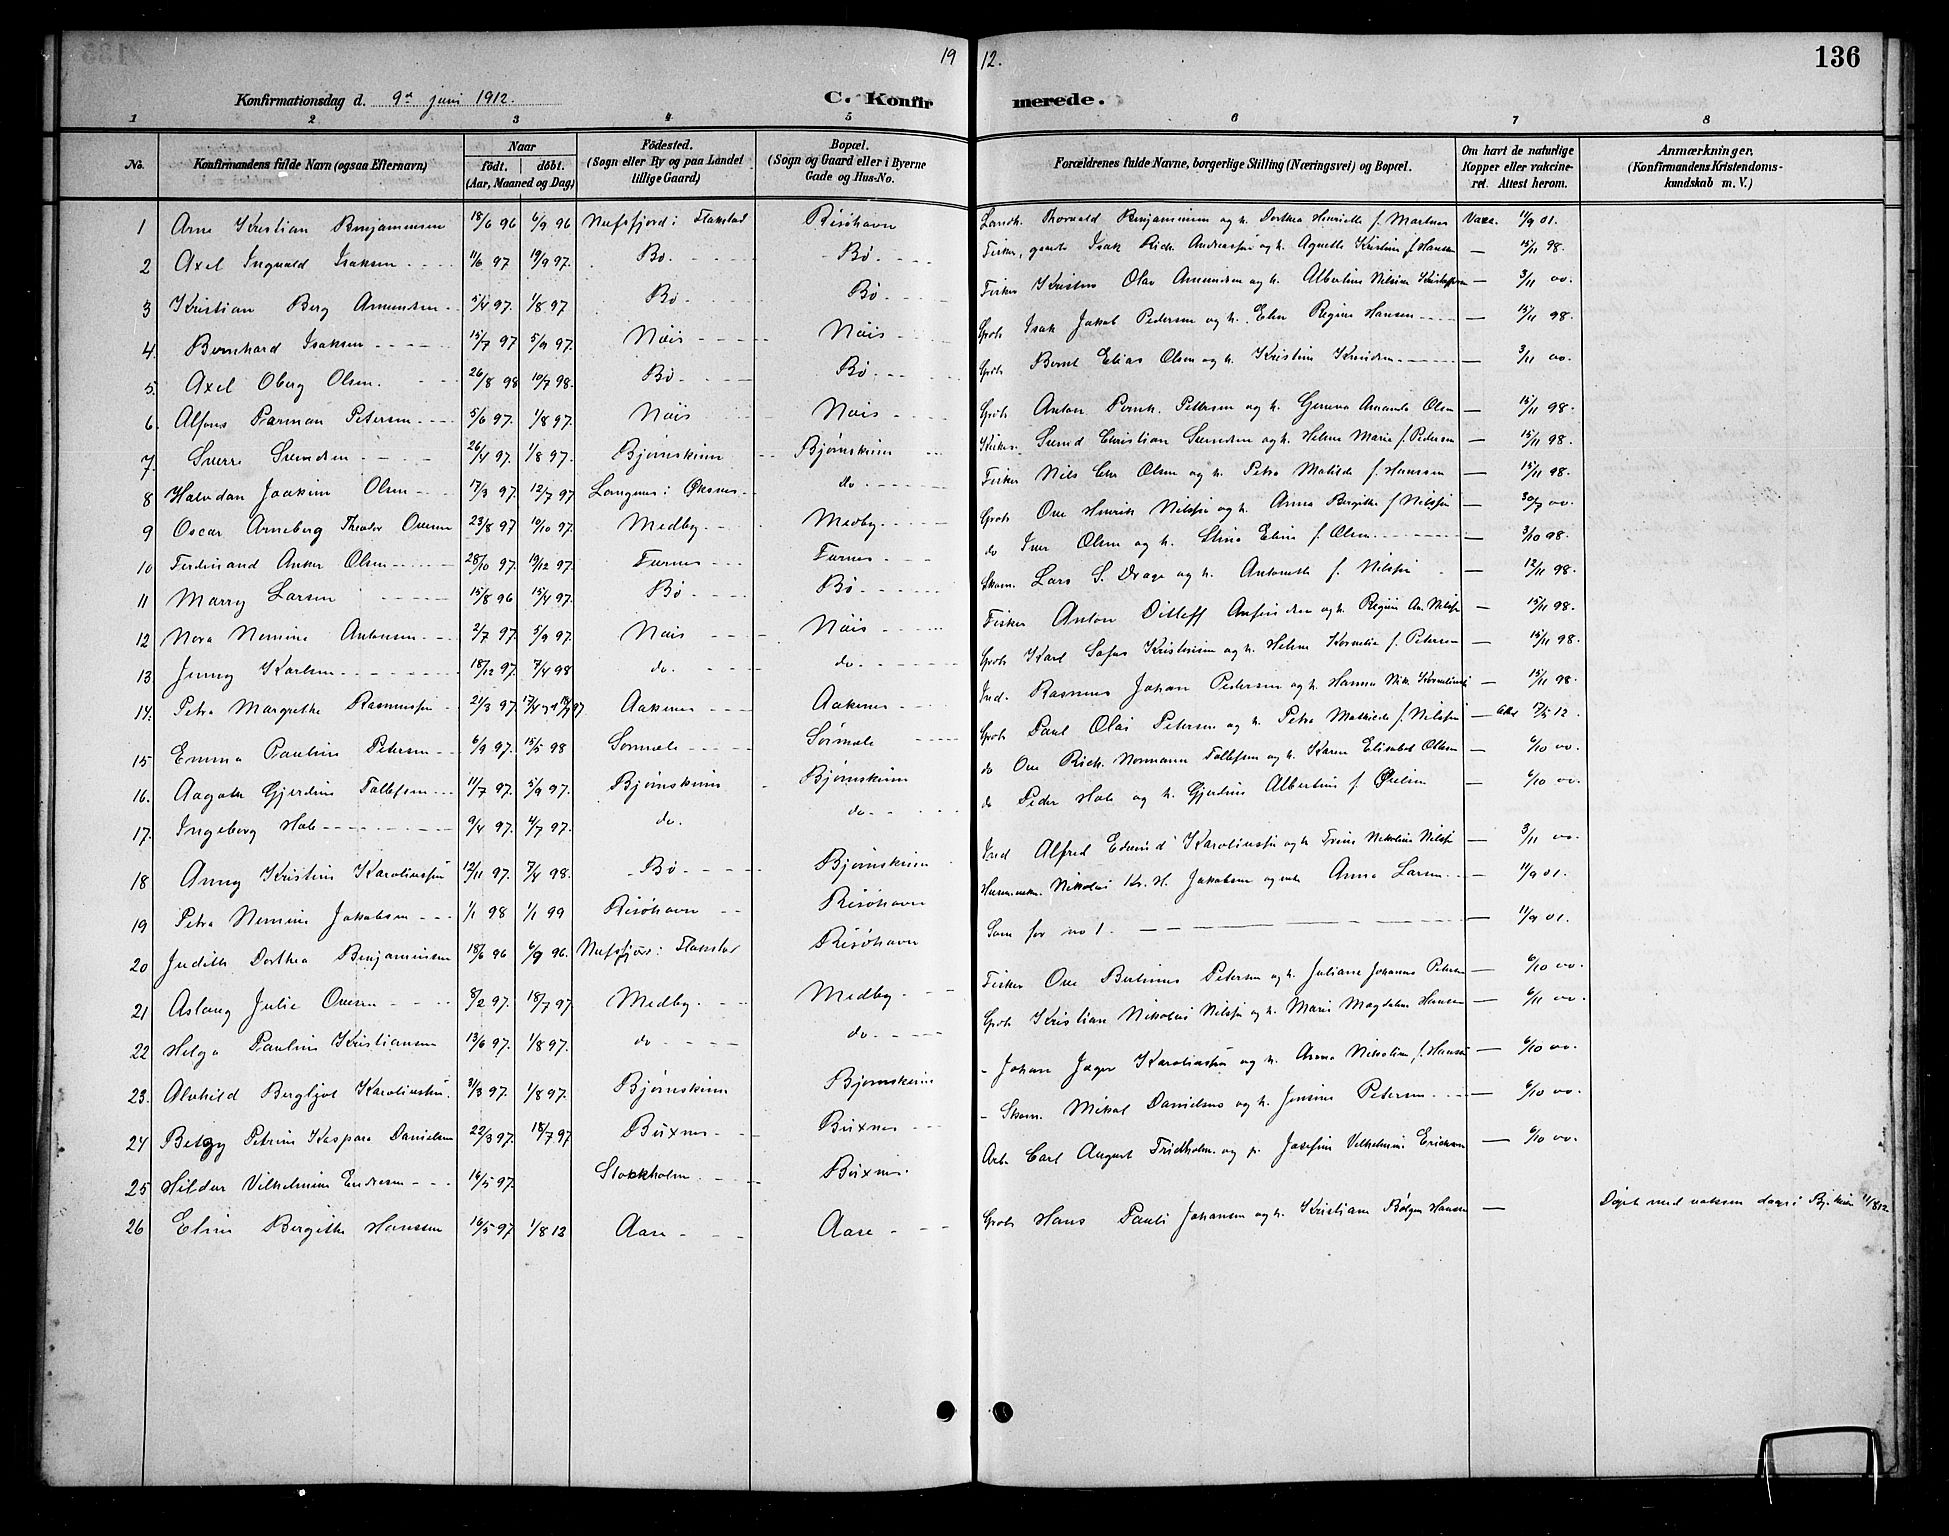 19 12. 136
Konfirmationsdag d. 9de juni 1912. C. Konfirmerede.
1 2 3 4 5 6 7 8
No. Konfirmandens fulde Navn (ogsaa Efternavn) Naar født. døbt. (Aar, Maaned og Dag) Fødested. (Sogn eller By og paa Landet tillige Gaard) Bopæl. (Sogn og Gaard eller i Byerne Gade og Hus-No. Forældrenes fulde Navne, borgerlige Stilling (Næringsvei) og Bopæl. Om havt de naturlige Kopper eller vakcineret. Attest herom. Anmærkninger, (Konfirmandens Kristendomskundskab m. V.)
1 Arne Kristian Benjaminsen 18/6 96 6/9 96 Nufsfjord i Flakstad Risøhavn Landh. Thorvald Benjaminsen og h. Dorthea Henriette f. Martens Vacc. 11/9 01.
2 Axel Ingvald Isaksen 11/6 97 19/9 97. Bø. Bø Fisker, Isak Rich. Andreassen og h. Agnethe Kristine f. Hansen — 15/11 98.
3 Kristian Berg Amundsen 5/4 97. 1/8 97 Bø Bø Fisker Kristen Olav Amundsen og h. Albertine Nilsine — 3/11 00.
4. Bernhard Isaksen 15/7 97 5/9 97. Nøis Nøis Grb. Isak Jakob Pedersen og h. Elen Regine Hansen — 15/11 98.
5. Axel Oberg Olsen. 26/8 98 10/7 98. Bø. Bø. Grb. Bernt Elias Olsen og h. Kristine Knudsen — 3/11 00.
6. Alfons Parman Petersen 5/6 97. 1/8 97. Nøis Nøis Grb. Anton Pettersen og h. Geneva Amanda Olsen — 15/11 98.
7. Sverre Svendsen 26/4 97. 1/8 97. Bjørnskinn Bjørnskinn Svend Christian Svendsen og h. Helene Marie f. Pedersen — 15/11 98.
8 Halvdan Joakim Olsen 17/3 97. 12/7 97 Langnes i Øksnes do Fisker Nils Olsen og h. Petra Matilde f. Hanssen — 15/11 98.
9 Oscar Arneberg Theodor Ovesen 23/8 97 10/10 97. Medby. Medby. Grb. Ove Henrik Nilssen og h. Anna Bergitte f. Nilssen — 30/7 00.
10 Ferdinand Anker Olsen 28/10 97. 19/12 97. Furnes Furnes do Iver Olsen og h. Stina Elina f. Olsen — 3/10 98.
11 Marry Larsen 15/8 96 15/4 97. Bø Bø Skom. Lars S. Drage og h. Antonette f. Nilssen — 12/11 98.
12 Nora Nemine Antonsen 2/7 97. 5/9 97. Nøis Nøis Fisker Anton Ditleff og h. Regine An. Nilssen — 15/11 98.
13 Jenny Karlsen 18/12 97. 7/4 98 do. do. Grb. Karl Sofus Kristensen og h. Helene Kornelia f. Petersen — 15/11 98.
14. Petra Margrethe Rasmussen 21/3 97. Aaknes Aaknes Ind. Rasmus Johan Pedersen og h. Hanna Nik. — 15/11 98.
15 Emma Pauline Petersen 6/9 97. 15/5 98 Sørmæle Sørmæle Grb. Paul Olai Petersen og h. Petra Mathilde f. Nilssen — 17/5 12.
16. Aagate Gjerdine Tollefsen 11/7 97. 5/9 97. Bjørnskinn Bjørnskinn do Ove Rich. Normann Tollefsen og h. Karen Elisabet Olsen — 6/10 00.
17. Ingeborg Hals 9/4 97. 4/7 97. do. do. do Peder Hals og h. Gjerdine Albertine f. — 6/10 00.
18 Anny Kristine Karoliussen 12/11 97. 7/4 98. Bø Bjørnskinn Ind Alfred Edvind Karoliussen og h. Trine Nikoline Nilssen — 3/11 00.
19 Petra Nemine Jakobsen 1/1 98 1/1 99 Risøhavn Risøhavn Nikolai Kr. H. Jakobsen og Anna Larsen — 11/9 01.
20 Judith Dorthea Benjaminsen 18/6 96 6/9 96. Nufsfjord i Flakstad Risøhavn Som for no 1. — 11/9 01.
21 Aslaug Julie Ovesen 8/2 97. 18/7 97 Medby. Medby. Fisker Ove Berlinus Petersen og h. Juliane Johannes Petersen — 6/10 00.
22 Helga Pauline Kristiansen 13/6 97 1/8 97. do do Grb. Kristian Nikolai Nilssen og h. Marie Magdalene Hansen — 6/11 00.
23. Alvhild Bergljot Karoliussen. 31/3 97. 1/8 97. Bjørnskinn Bjørnskinn - Johan Jæger Karoliussen og h. Anna Nikoline f. Hansen — 6/10 00.
24 Betzy Petrine Kaspara Danielsen 22/3 97. 18/7 97 Buxnes Buxnes - Skom. Mikal Daniels og h. Jensine Petersen — 6/10 00.
25 Hildur Vilhelmine 16/5 97. Stockholm Buxnes. Arb. Carl August Fridholm og p. Josefine Vilhelmine Ericksen — 6/10 00.
26 Eline Bergithe Hanssen 16/5 97 1/8 12 Aase Aase Grb. Hans Pauli Johansen og h. Kristiane Bølgen Hansen — Døpt med voksen daap i Bj.